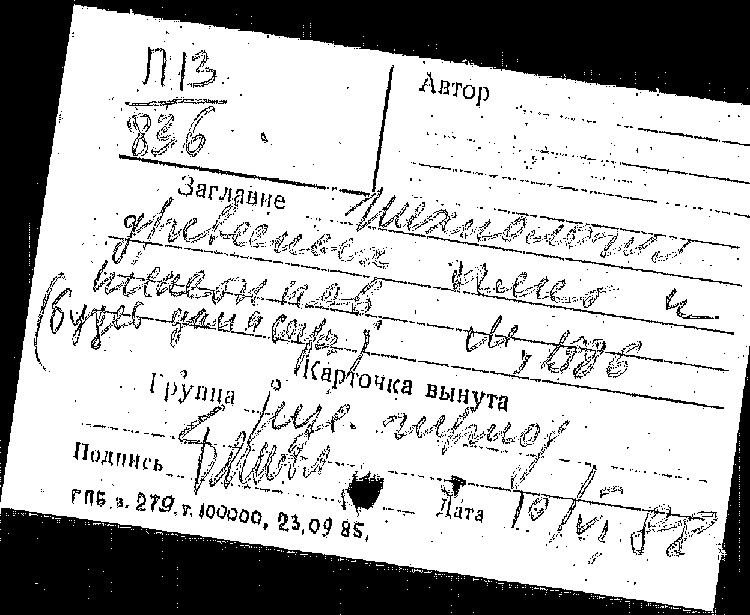 П13
836
Автор
Заглавие Технология
древесных плит и
пластиков
(будет дана сокр.) М., 1986
Карточка вынута
Группа рус. период
Подпись
Дата 10/VI 88
ГПБ з. 279. т. 100000, 23.09 85.